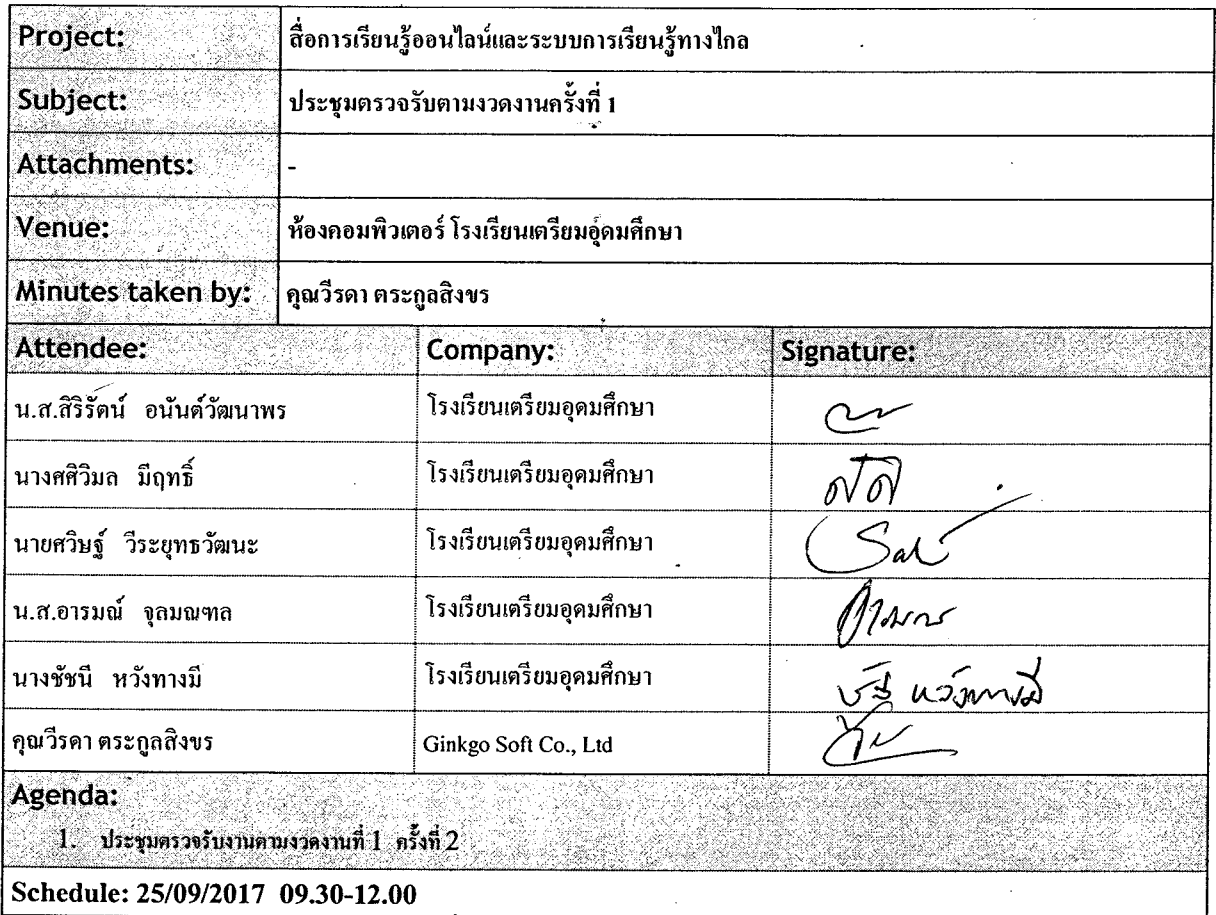 Project: สื่อการเรียนรู้ออนไลน์และระบบการเรียนรู้ทางไกล
Subject: ประชุมตรวจรับตามงวดงานครั้งที่ 1
Attachments: -
Venue: ห้องคอมพิวเตอร์ โรงเรียนเตรียมอุดมศึกษา
Minutes taken by: คุณวีรดา ตระกูลสิงขร
Attendee: Company: Signature:
น.ส.สิริรัตน์ อนันต์วัฒนาพร โรงเรียนเตรียมอุดมศึกษา
นางศศิวิมล มีฤทธิ์ โรงเรียนเตรียมอุดมศึกษา
นายศวิษฐ์ วีระยุทธวัฒนะ โรงเรียนเตรียมอุดมศึกษา
น.ส.อารมณ์ จุลมณฑล โรงเรียนเตรียมอุดมศึกษา
นางชัชนี หวังทางมี โรงเรียนเตรียมอุดมศึกษา หวังทางมี
คุณวีรดา ตระกูลสิงขร Ginkgo Soft Co., Ltd
Agenda:
1. ประชุมตรวจรับงานตามงวดงานที่ 1 ครั้งที่ 2
Schedule: 25/09/2017 09.30-12.00